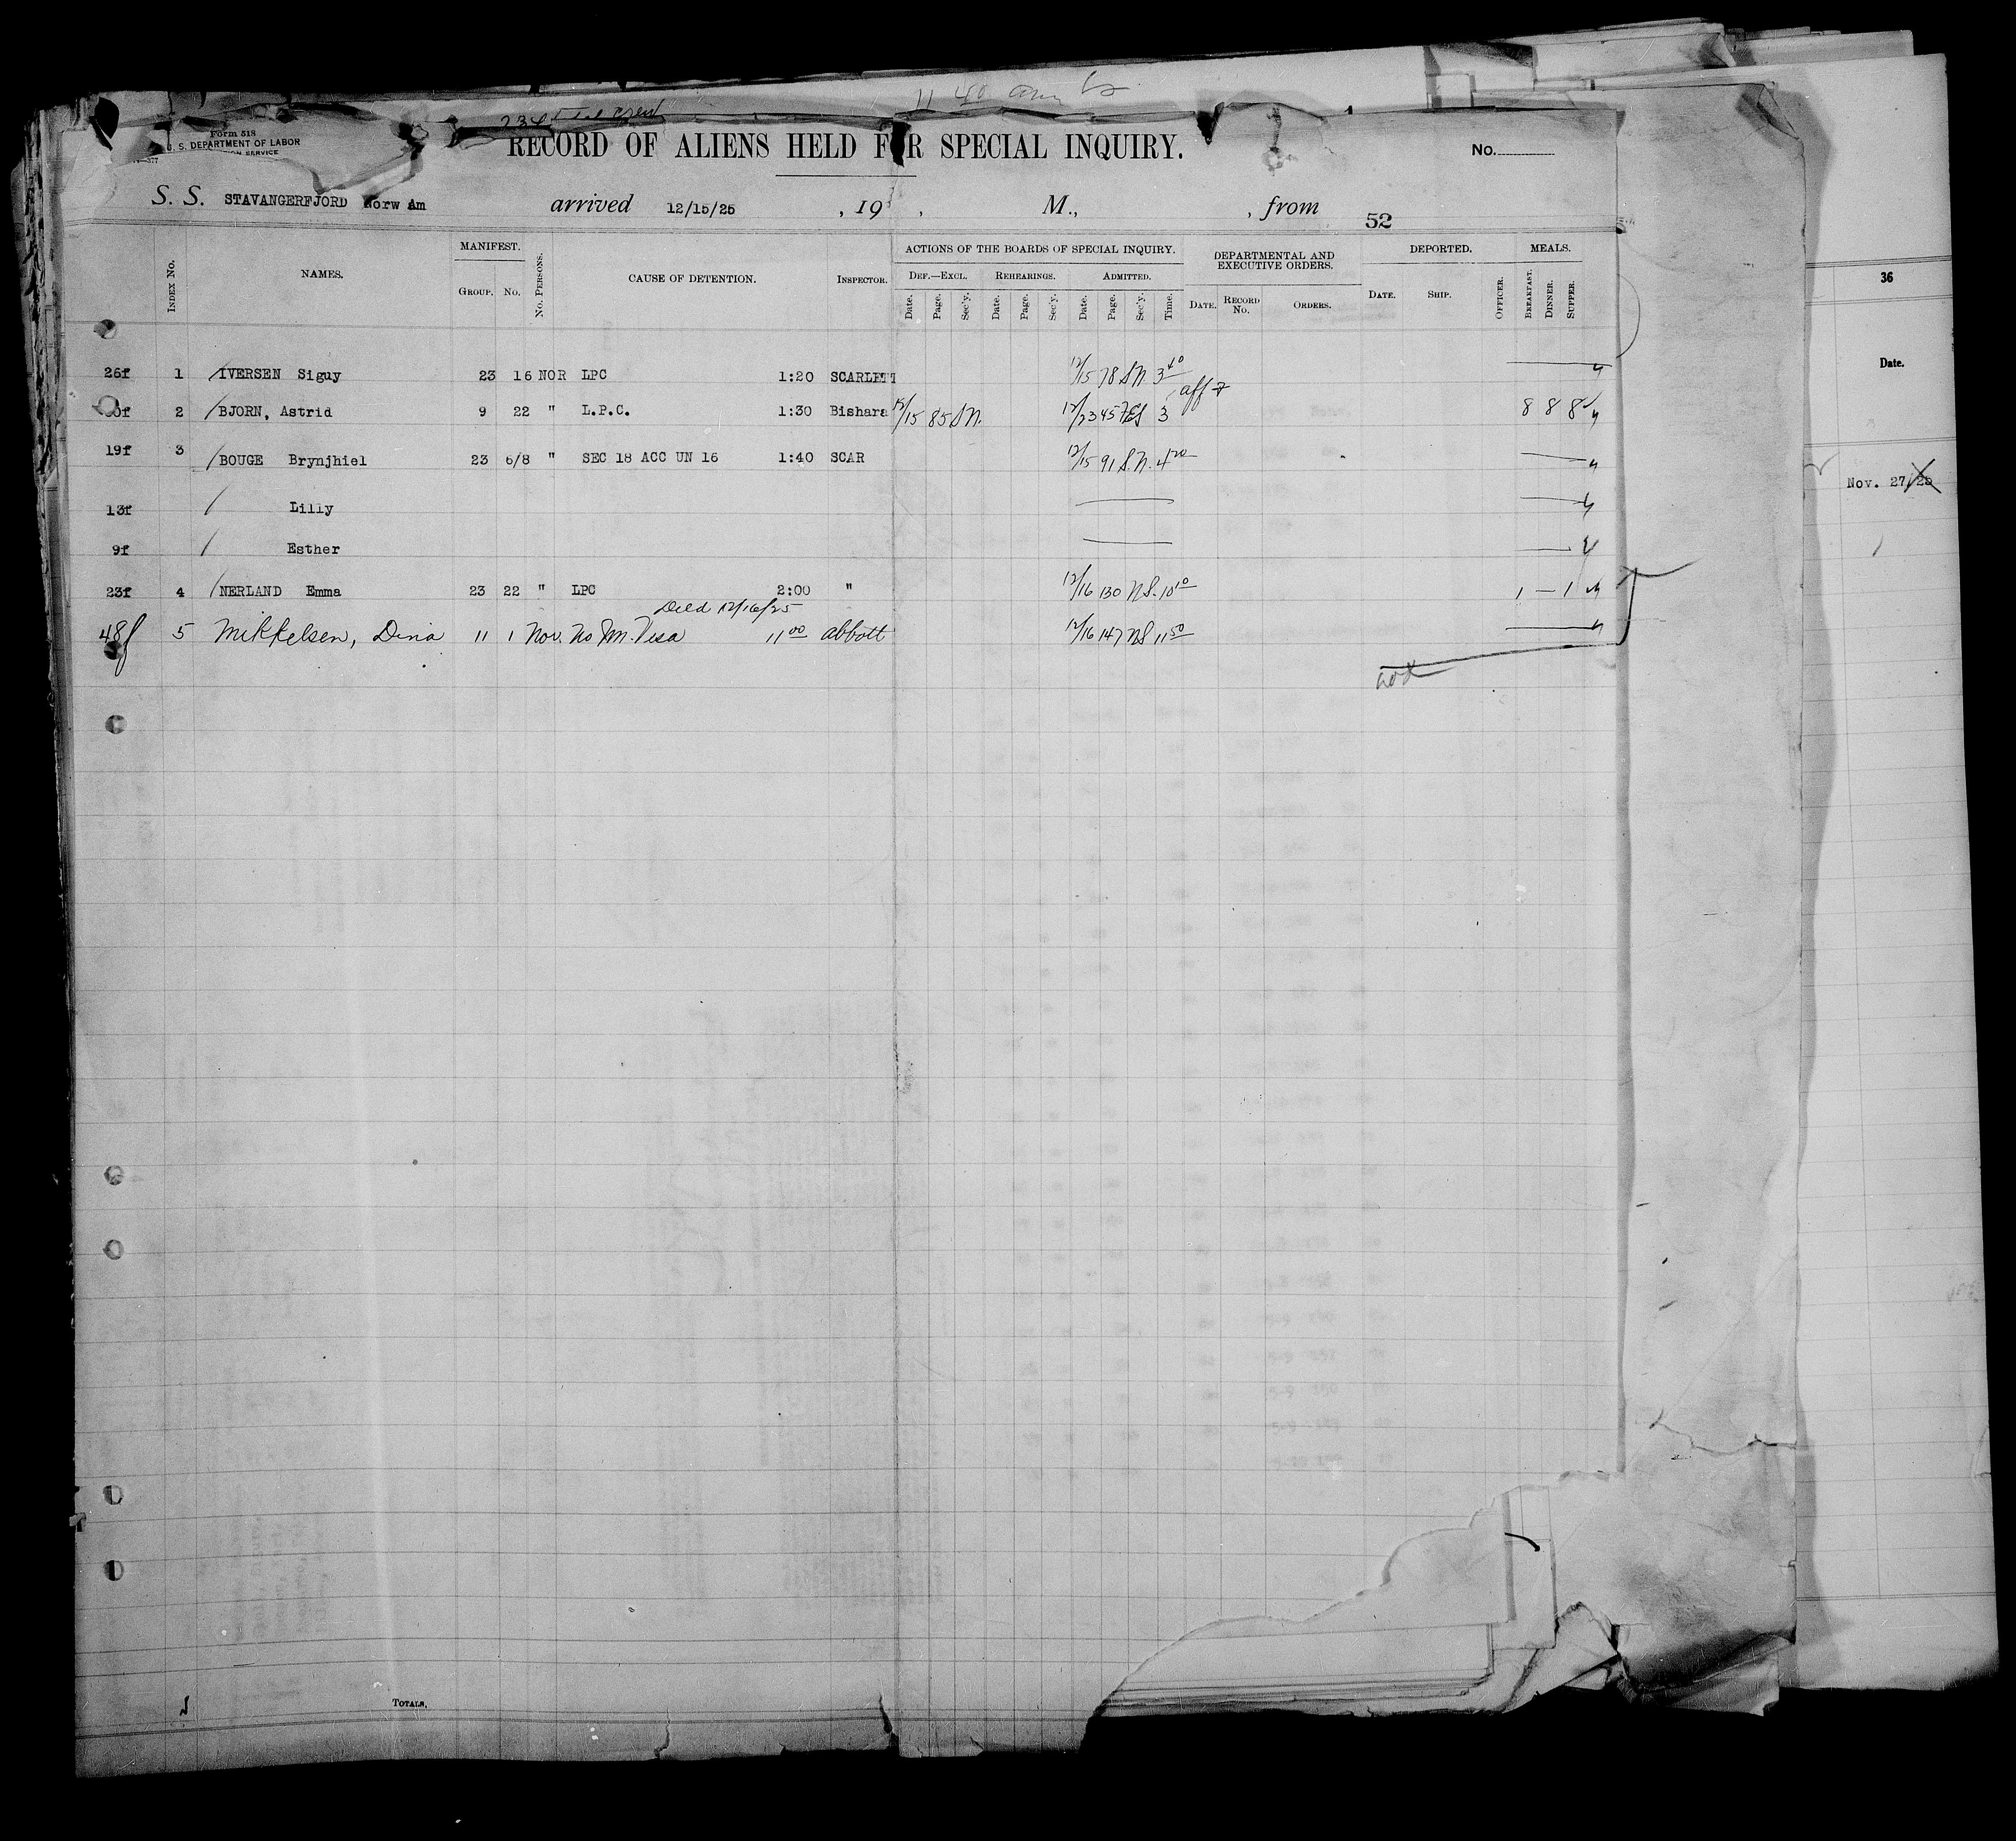 11 40 am
234
Form 518
U. S. DEPARTMENT OF LABOR
SERVICE
RECORD OF ALIENS HELD FOR SPECIAL INQUIRY.
No.
S. S. STAVANGERFJORD Norw Am arrived 12/15/25 , 19 , M., , from 52
INDEX No. NAMES. MANIFEST. GROUP. No. No. PERSONS. CAUSE OF DETENTION. INSPECTOR. ACTIONS OF THE BOARDS OF SPECIAL INQUIRY. DEF.—EXCL. Date. Page. Sec'y. REHEARINGS. Date. Page. Sec'y. ADMITTED. Date. Page. Sec'y. Time. DEPARTMENTAL AND EXECUTIVE ORDERS. DATE. RECORD No. ORDERS. DEPORTED. DATE. SHIP. OFFICER. MEALS. BREAKFAST. DINNER. SUPPER.
26f 1 IVERSEN Siguy 23 16 NOR LPC 1:20 SCARLETT 12/15 78 S.N. 3 40
aff
2 BJORN, Astrid 9 22 " L.P.C. 1:30 Bishara 12/15 85 S.N. 12/23 457 3 8 8 8
19f 3 BOUGE Brynjhiel 23 6/8 " SEC 18 ACC UN 16 1:40 SCAR 12/15 91 S.N. 4 20
13f Lilly
9f Esther
23f 4 NERLAND Emma 23 22 " LPC 2:00 " 12/16 130 NS. 10 10 1 — 1
Decd 12/16/25
48f 5 Mikkelsen, Dina 11 1 Nor. No Im. Visa 11 00 Abbott 12/16 147 NS 11 50
TOTALS.
36
Date.
Nov. 27/25